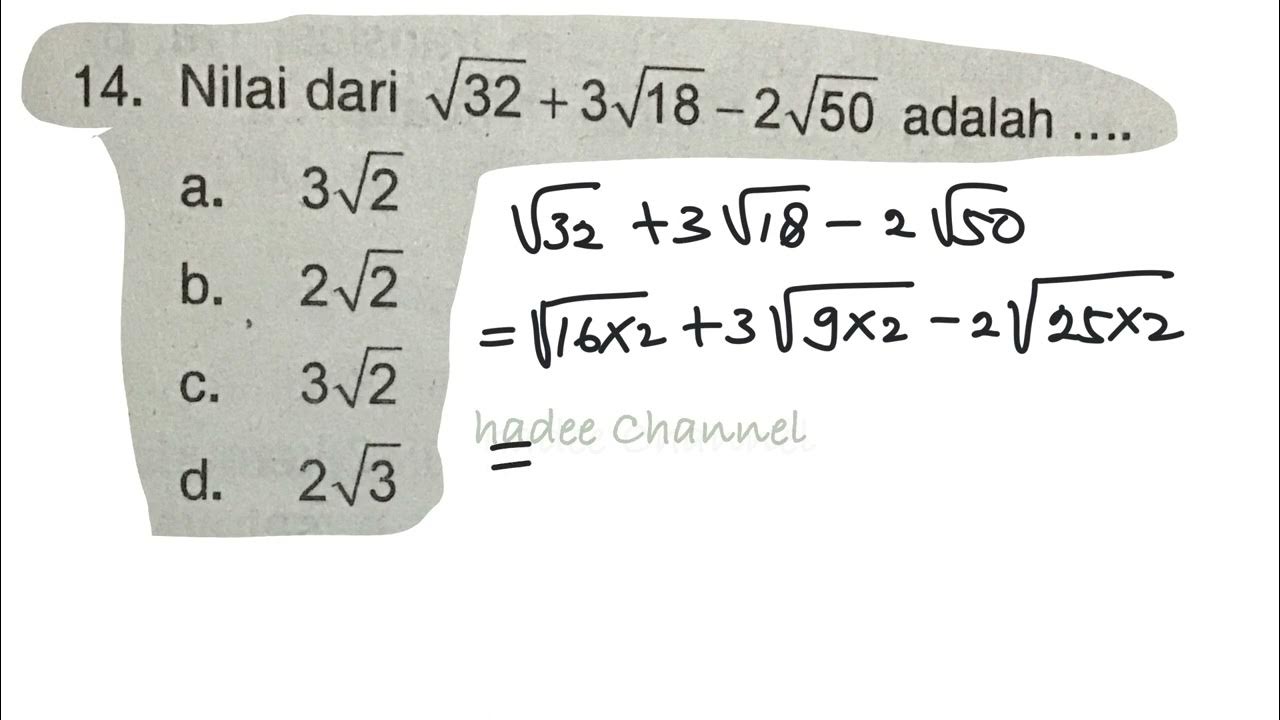 14. Nilai dari √32 + 3√18 – 2√50 adalah ....
a. 3√2
b. 2√2
c. 3√2
d. 2√3
√32 + 3√18 – 2√50
= √16×2 + 3√9×2 – 2√25×2
hadee Channel
=